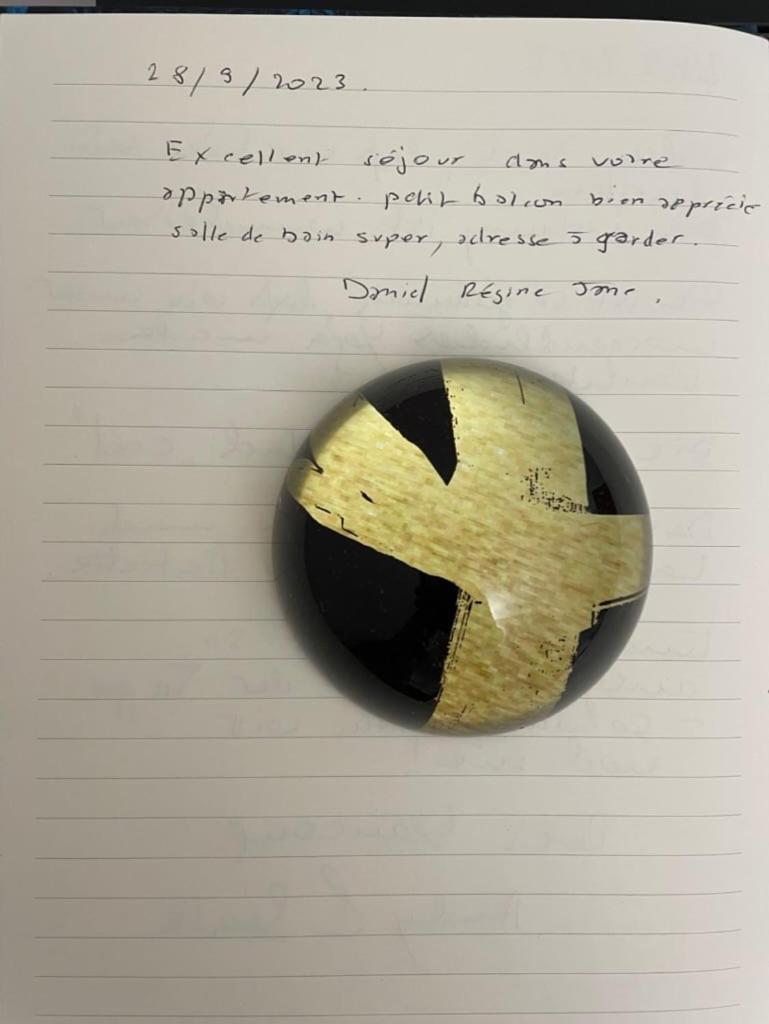 28/9/2023.
Excellent séjour dans votre
appartement. petit balcon bien apprécié
salle de bain super, adresse à garder.
Daniel Régine